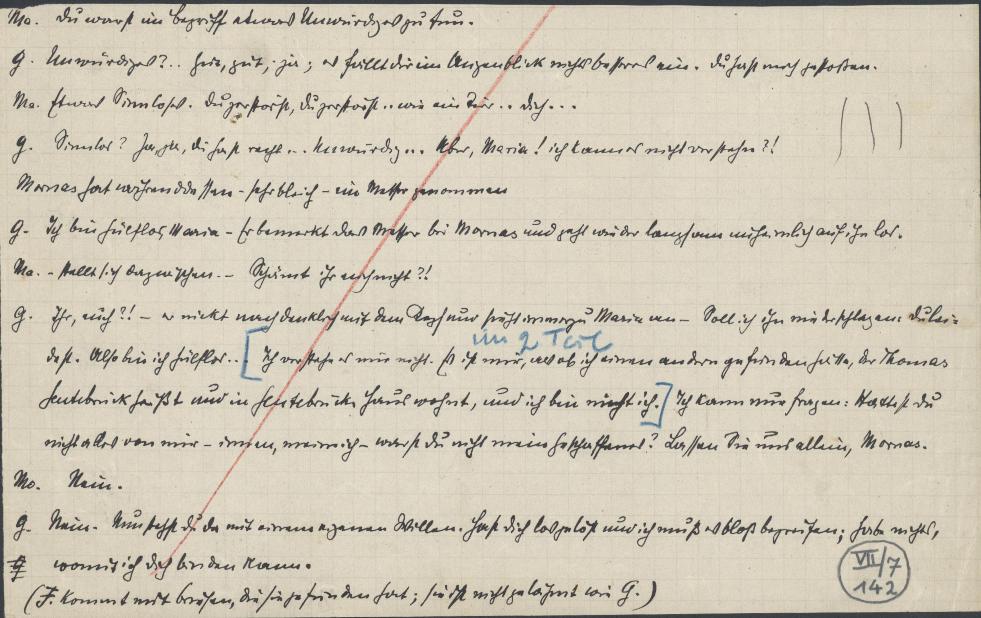 Ma. Du warst im Begriff etwas Unwürdiges zu tun.
G. Unwürdiges?.. gut, ja; es fällt dir im Augenblick nichts besseres ein. Du hast mich gestoßen.
Ma. Etwas Sinnloses. Du zerstörst, du zerstörst.. wie ein Tier.. dich...
G. Sinnlos? Ja, ja, du hast recht... Unwürdig... Aber, Maria! ich kann es nicht verstehn?!
Mornas hat währenddessen – sehr bleich – ein Messer genommen
G. Ich bin hülflos, Maria – Er bemerkt das Messer bei Mornas und geht wieder langsam unheimlich auf ihn los.
Ma. – stellt sich dazwischen. – Schämt ihr euch nicht?!
G. Ihr, euch?! – er nickt nachdenklich mit dem Kopf und sieht immerzu Maria an – Soll ich ihn niederschlagen: du lei=
im 2 Teil
dest. Also bin ich hülflos.. [Ich verstehe es nur nicht. Es ist mir, als ob ich einen andern gefunden hätte, der Thomas
heißt und in Haus wohnt, und ich bin nicht ich.] Ich kann nur fragen: Hattest du
nicht alles von mir – innen, mein ich – warst du nicht mein Geschaffenes? Lassen Sie uns allein, Mornas.
Mo. Nein.
G. Nein. Nun stehst du da mit einem eigenen Willen. Hast dich losgelöst und ich muß es bloß begreifen; habe nichts,
womit ich dich binden kann.
(F. kommt mit Briefen, die sie gefunden hat; sie ist nicht gelähmt wie G.)
VII/7
142